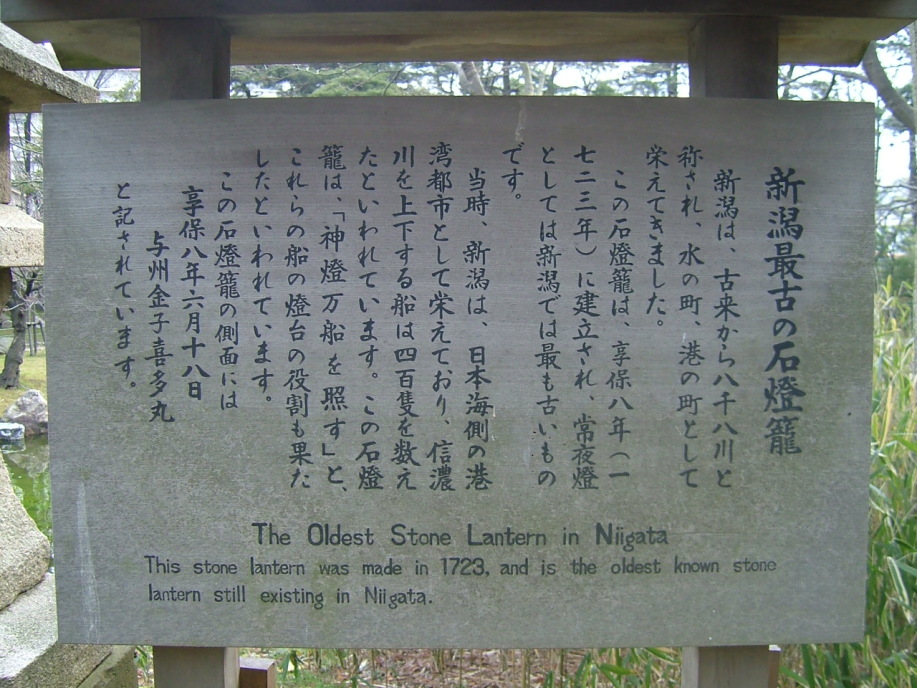 新潟最古の石燈籠
新潟は、古来から八千八川と
称され、水の町、港の町として
栄えてきました。
この石燈籠は、享保八年(一
七二三年)に建立され、常夜燈
としては新潟では最も古いもの
です。
当時、新潟は、日本海側の港
湾都市として栄えており、信濃
川を上下する船は四百隻を数え
たといわれています。この石燈
籠は、「神燈万船を照す」と、
これらの船の燈台の役割も果た
したといわれています。
この石燈籠の側面には
享保八年六月十八日
与州金子喜多丸
と記されています。
The Oldest Stone Lantern in Niigata
This stone lantern was made in 1723, and is the oldest known stone
lantern still existing in Niigata.